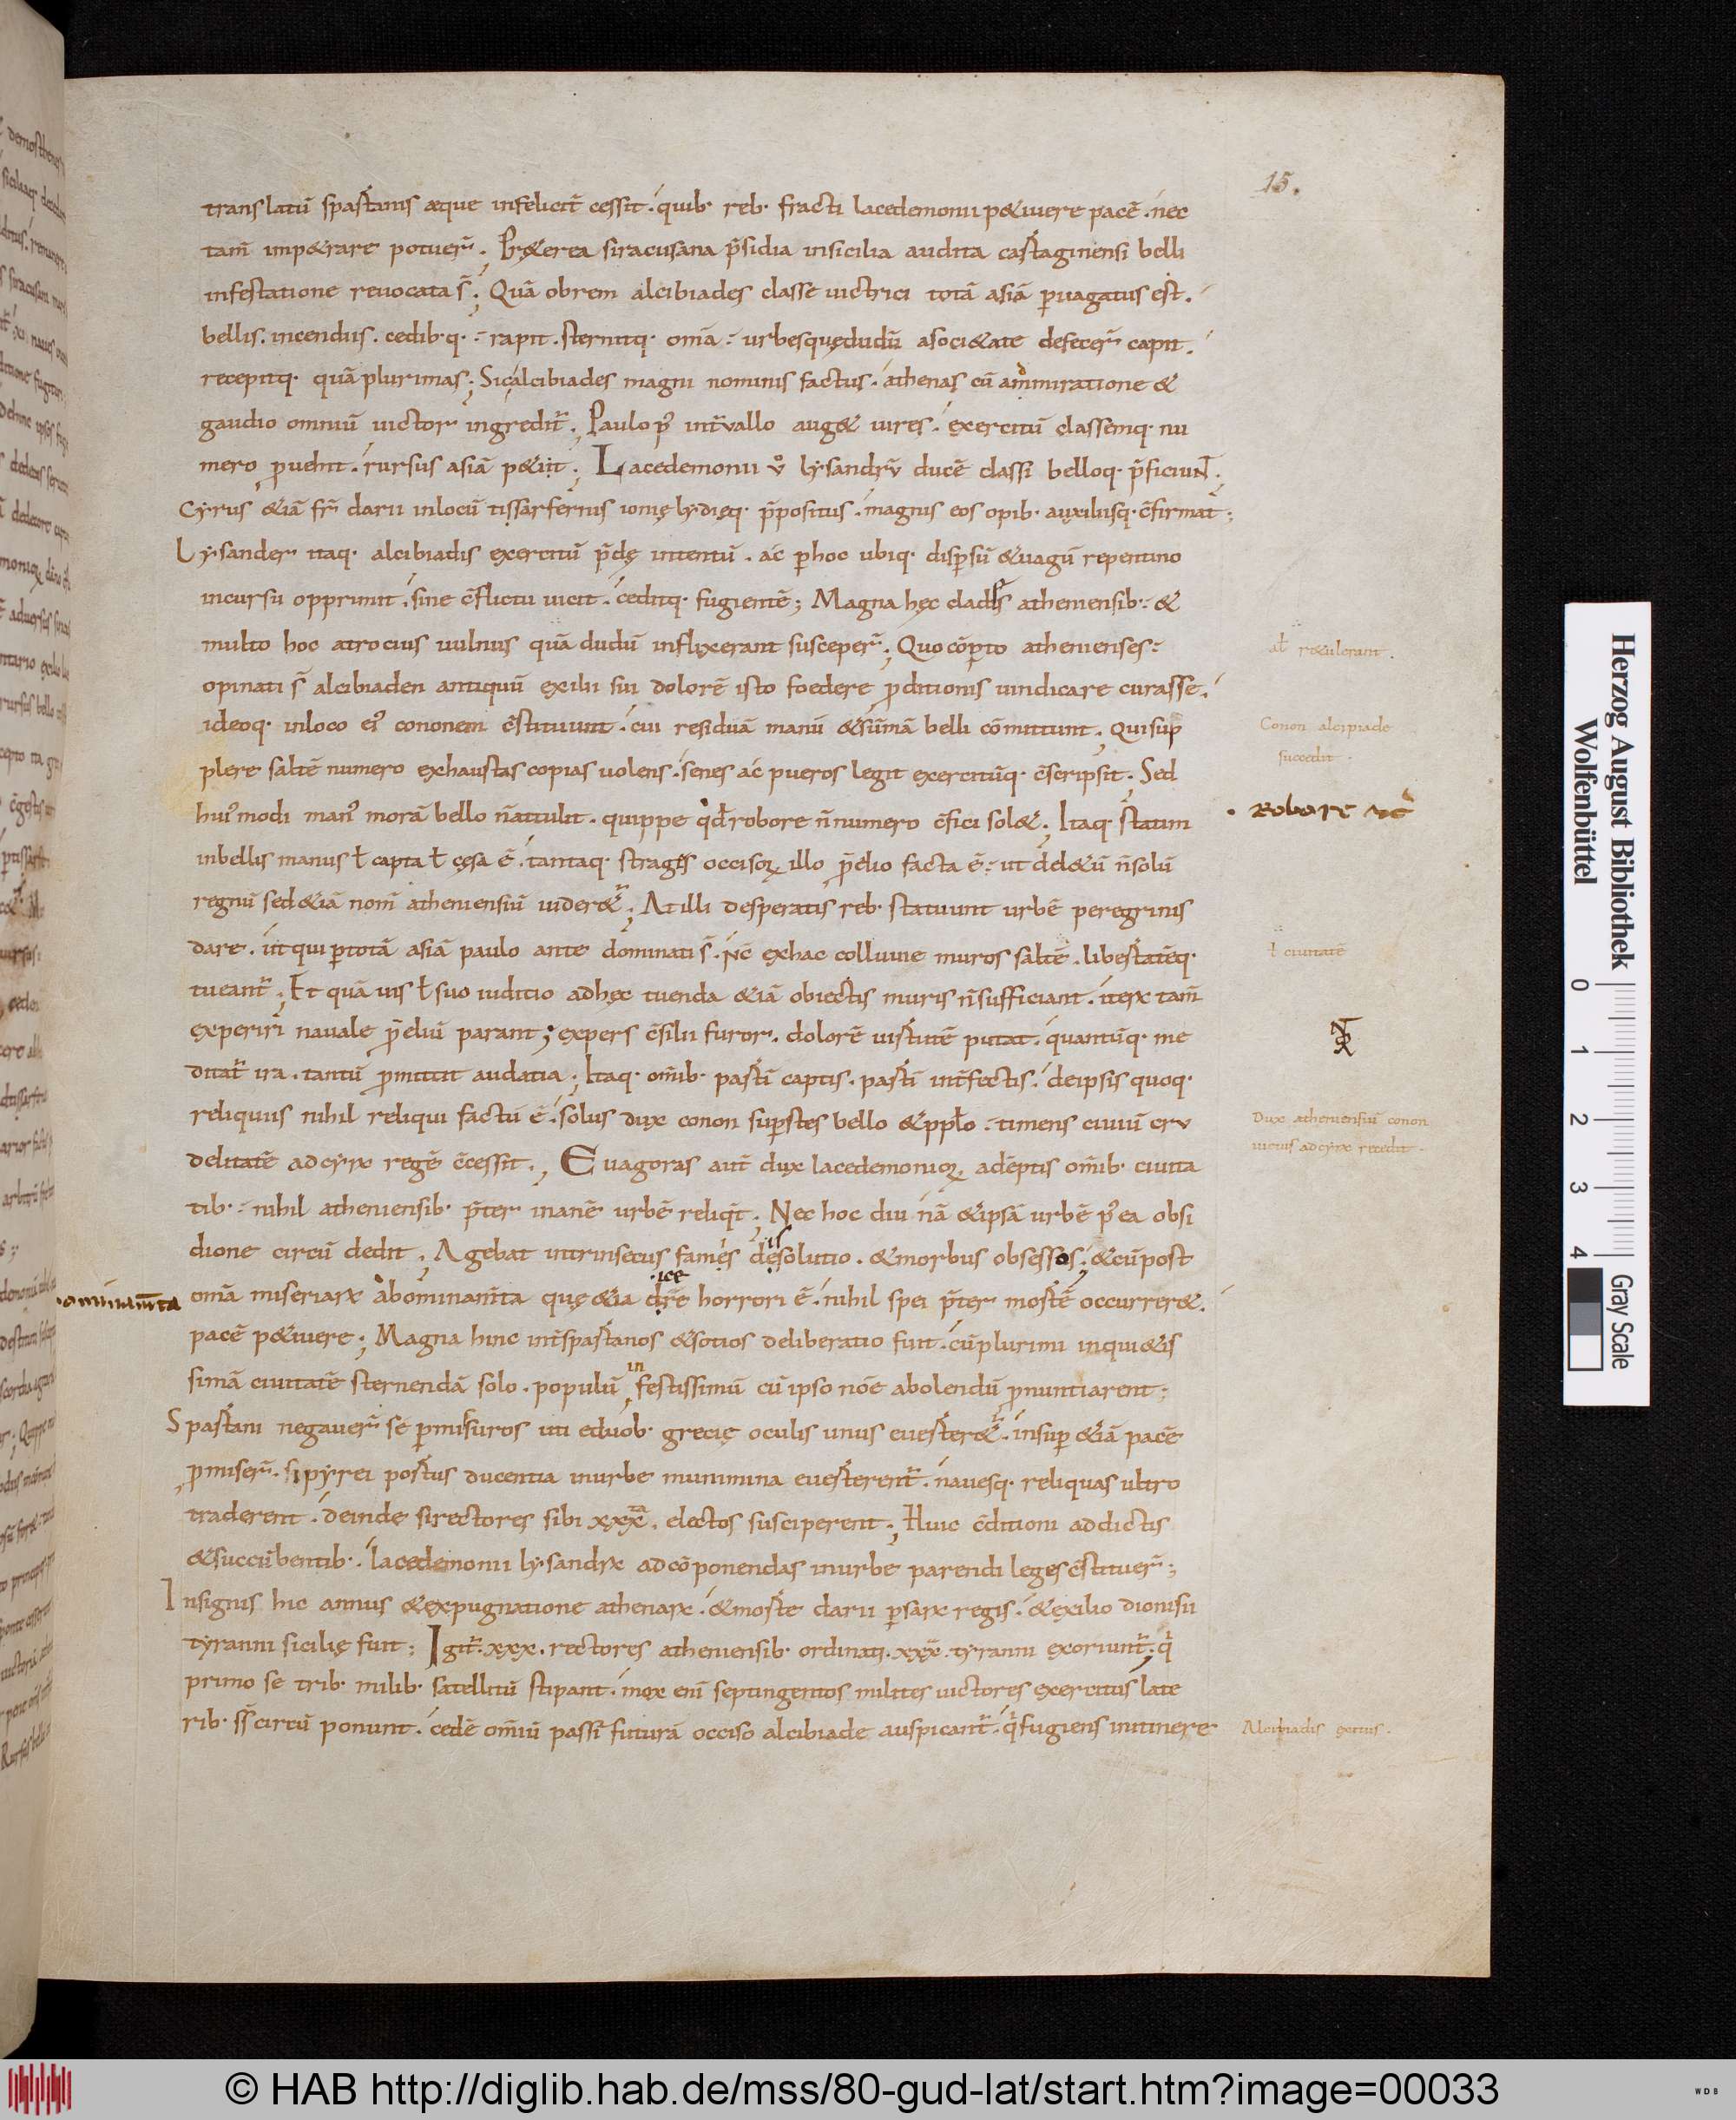 15.
translatū spartanis æque infelicit̄ cessit. quib· reb· fracti lacedemonii p&iuere pacē. nec
tam̄ imp&rare potuer̄; Pr&erea siracusana p̄sidia insicilia audita cartaginensi belli
infestatione reuocata s̄; Quā obrem alcibiades classe uictrici totā asiā puagatus est.
bellis. incendiis. cedib·q· rapit. sternitq· om̄a urbesquędudū asoci&ate defecer̄ capit.
recepitq· quā plurimas; Sicalcibiades magni nominis factus. athenas cū ammiratione &
gaudio omniū uictor ingredit̄; Paulo p' int̄uallo aug& uires. exercitū classemq· nu
mero puehit. rursus asiā p&iit; Lacedemonii v° lysandrv̄ ducē classi belloq· p̄ficiuNT;
Cyrus &iā fr̄ darii inlocū tissafernis ionię lydięq· p̄positus. magnis eos opib· auxiliisq· c̄firmat;
Lysander itaq· alcibiadis exercitū p̄dę intentū. ac phoc ubiq· dispsū &uagū repentino
incursu opprimit. sine c̄flictu uicit. ceditq· fugientē; Magna hęc clades atheniensib· &
multo hoc atrocius uulnus quā dudū inflixerant susceper̄; Quo cōpto athenienses
opinati s̄ alcibiaden antiquū exilii sui dolorē isto foedere pditionis uindicare curasse.
ideoq· inloco ei' cononem c̄stituunt. cui residuā manū &sūmā belli cōmittunt; Quisup
plere saltē numero exhaustas copias uolens. senes ac pueros legit exercitūq· c̄scripsit; Sed
hui'modi man' morā bello n̄attulit. quippe qd̄ robore n̄numero c̄fici sol&; Itaq· statim
inbellis manus ł capta ł cęsa ē. tantaq· strages occisoꝝ illo p̄elio facta ē ut del&ū n̄solū
regnū sed&iā nom̄ atheniensiū uider&̄; At illi desperatis reb· statuunt urbē peregrinis
dare. ut qui ptotā asiā paulo ante dominati s̄. nc̄ exhac colluuie muros saltē. libertatēq·
tueant̄; Et quā uis ł suo iuditio adhęc tuenda &iā obiectis muris n̄sufficiant. iteꝝ tam̄
experiri nauale p̄eliū parant; expers c̄silii furor. dolorē uirtutē putat. quantūq· me
ditat̄ ira. tantū pmittit audatia; Itaq· om̄ib· partī captis. partī int̄fectis. deipsis quoq·
reliquiis nihil reliqui factū ē. solus dux conon supstes bello &ppło timens ciuiū cru
delitatē adcyꝝ regē c̄cessit; Euagoras aut̄ dux lacedemonioꝝ adēptis om̄ib· ciuita
tib· nihil atheniensib· p̄ter inanē urbē reliqt̄; Nec hoc diu nā &ipsā urbē p'ea obsi
dione circū dedit; Agebat intrinsecus famęs desolutio. &morbus obsessos; &cūpost
is
ice
om̄a miseriaꝝ abominam̄ta quę&ia dr̄e horrori ē. nihil spei p̄ter mortē occurrer&.
pacē p&iuere; Magna hinc int̄spartanos &sotios deliberatio fuit. cūplurimi inqui&is
simā ciuitatē sternendā solo. populū festissimū cū ipso nōe abolendū pnuntiarent;
in
Spartani negauer̄ se pmissuros uti eduob· grecię oculis unus euerter&̄. insup &iā pacē
pmiser̄. si pyrei portus ducentia inurbe munimina euerterent̄. nauesq· reliquas ultro
traderent. deinde sirectores sibi xxx̄. electos susciperent; Huic c̄ditioni addictis
&succūbentib·. lacedemonii lysandꝝ adcōponendas inurbe parendi leges c̄stituer̄;
Insignis hic annus &expugnatione athenaꝝ. &morte darii psaꝝ regis. &exilio dionisii
tyranni sicilię fuit; Igit̄ xxx. rectores atheniensib· ordinati. xxx̄. tyranni exoriunt̄; q'
primo se trib· milib· satellitū stipant. mox enī septingentos milites uictores exercitus late
rib· ss̄ circū ponunt. cedē om̄iū passī futurā occiso alcibiade auspicant̄. q'fugiens initinere
ał r&ulerant.
Conon alcipiade
succedit.
Robore
ł ciuitatē
Dux atheniensiū conon
uictus adcyꝝ recedit.
Alcibiadis exitus.
Herzog August Bibliothek
Wolfenbüttel
0 1 2 3 4
Gray Scale
© HAB http://diglib.hab.de/mss/80-gud-lat/start.htm?image=00033
WDB